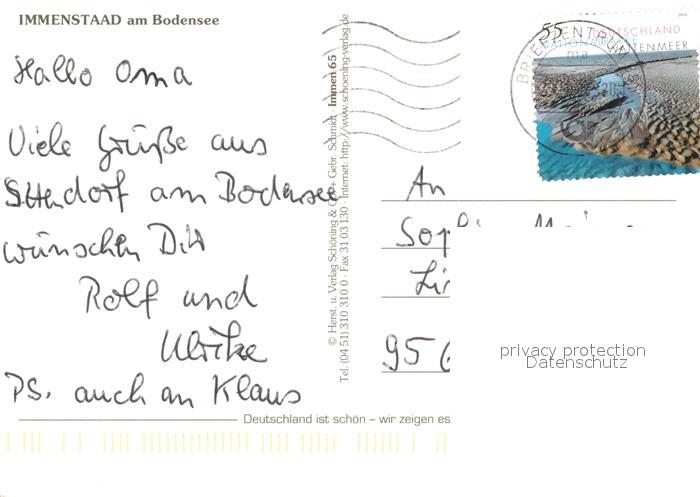 IMMENSTAAD am Bodensee
Hallo Oma
Viele Grüße aus
am Bodensee
wünschen Dir
Rolf und
Ulrike
PS. auch an Klaus
© Herst. u. Verlag Schöning & Co + Gebr. Schmidt · Immen 65
Tel. (04 51) 310 310 0 · Fax 31 03 130 · Internet: http://www.schoening-verlag.de
55 DEUTSCHLAND
BRIEFZENTRUM
An
95
Deutschland ist schön – wir zeigen es
privacy protection
Datenschutz